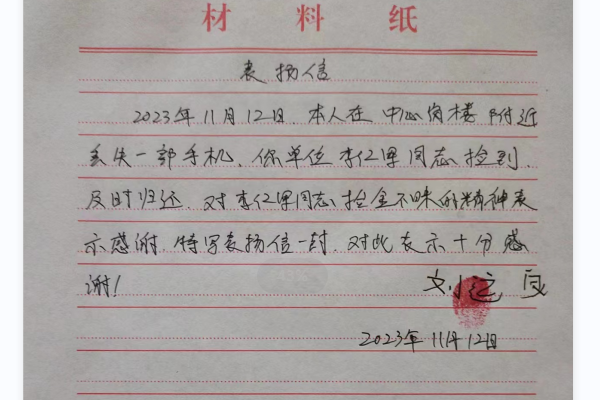 材料纸
表扬信
2023年11月12日.本人在中心岗楼附近
丢失一部手机.你单位李仁军同志捡到.
及时归还.对李仁军同志拾金不昧的精神表
示感谢.特写表扬信一封.对此表示十分感
谢!
刘运良
2023年11月12日